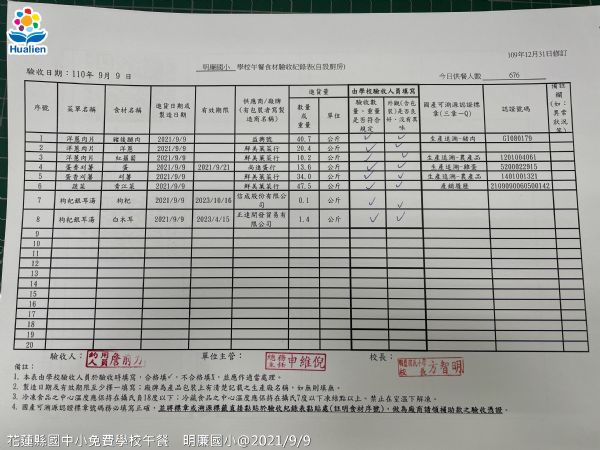 Hualien
109年12月31日修訂
明廉國小 學校午餐食材驗收紀錄表(自設廚房)
驗收日期:110年 9月 9日
今日供餐人數 676
序號 菜單名稱 食材名稱 進貨日期或製造日期 有效期限 供應商/廠牌(有包裝者填寫製造商名稱) 進貨量 數量或重量 單位 由學校驗收人員填寫 驗收數量、重量是否符合規定 外觀(含包裝)是否良好,沒有異味 國產可溯源認證標章(三章一Q) 認證號碼 備註欄(如:異常狀況等)
1 洋蔥肉片 豬後腿肉 2021/9/9 益興號 40.7 公斤 ✓ ✓ 生產追溯-豬肉 G1080179
2 洋蔥肉片 洋蔥 2021/9/9 鮮美蔬菜行 20.4 公斤 ✓ ✓
3 洋蔥肉片 紅蘿蔔 2021/9/9 鮮美蔬菜行 10.2 公斤 ✓ ✓ 生產追溯-農產品 1201004061
4 蛋香刈薯 蛋 2021/9/9 2021/9/21 尚進蛋行 13.6 公斤 ✓ ✓ 生產追溯-雞蛋 5200022915
5 蛋香刈薯 刈薯 2021/9/9 鮮美蔬菜行 34.0 公斤 ✓ ✓ 生產追溯-農產品 1401001321
6 蔬菜 青江菜 2021/9/9 鮮美蔬菜行 47.5 公斤 ✓ ✓ 產銷履歷 2109090060500142
7 枸杞銀耳湯 枸杞 2021/9/9 2023/10/16 信成股份有限公司 0.1 公斤 ✓ ✓
8 枸杞銀耳湯 白木耳 2021/9/9 2023/4/15 正達開發貿易有限公司 1.4 公斤 ✓ ✓
9
10
11
12
13
14
15
16
17
18
19
20
驗收人: 單位主管: 總務主任 申維倪 校長: 方智明
備註:
1. 本表由學校驗收人員於驗收時填寫,合格填✓,不合格填X,並應作適當處理。
2. 製造日期及有效期限至少擇一填寫;廠牌為產品包裝上有清楚記載之生產廠名稱,如無則填無。
3. 冷凍食品之中心溫度應保持在攝氏負18度以下;冷藏食品之中心溫度應保持在攝氏7度以下凍結點以上。禁止在室溫下解凍。
4. 國產可溯源認證標章號碼務必填寫正確,並將標章或溯源標籤直接黏貼於驗收紀錄表黏貼處(註明食材序號),做為廠商請領補助款之驗收憑證。
花蓮縣國中小免費學校午餐 明廉國小@2021/9/9